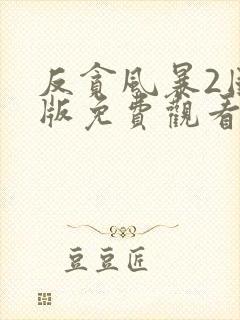 反貪風暴2国
版免費觀看
豆豆匠